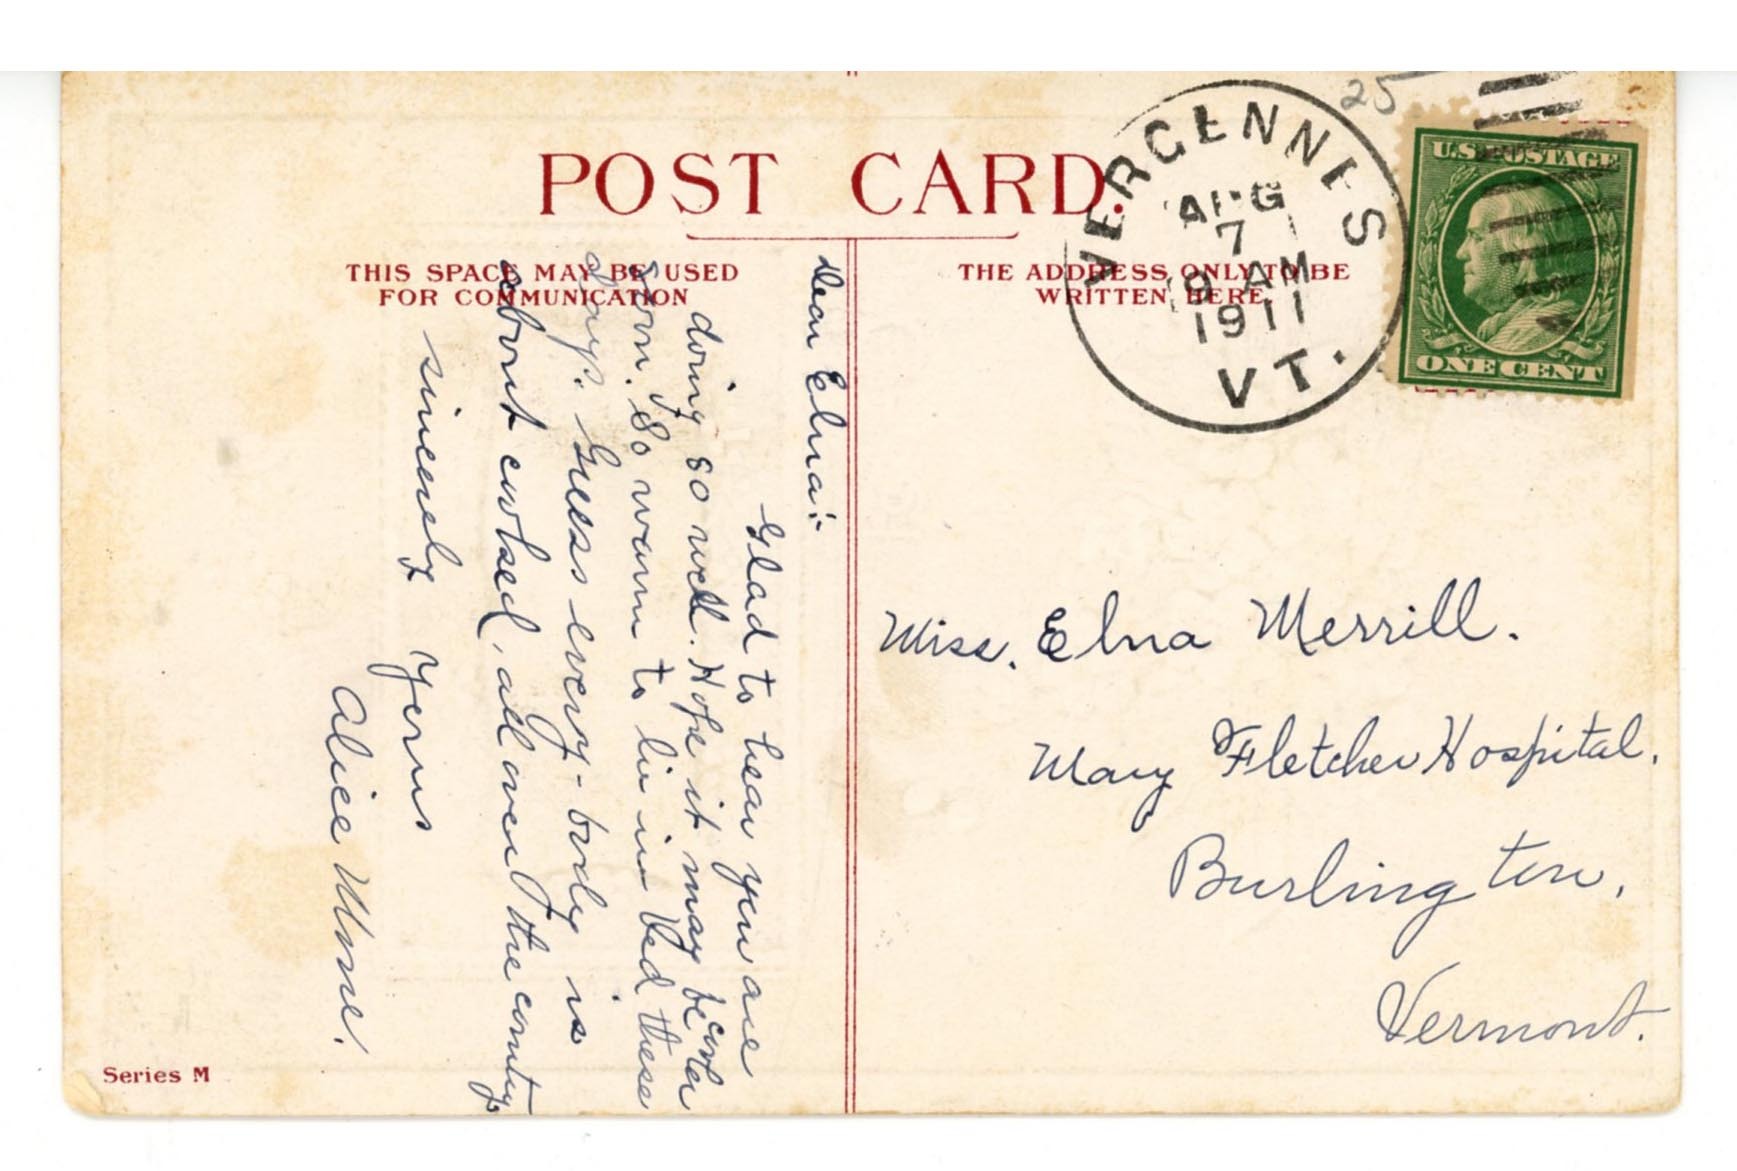 25
VERGENNES
AUG
7
9 AM
1911
VT.
U.S. POSTAGE
ONE CENT
POST CARD.
THIS SPACE MAY BE USED
FOR COMMUNICATION
THE ADDRESS ONLY TO BE
WRITTEN HERE
Dear Elna:
Glad to hear you are
doing so well. Hope it may be cooler
soon. So warm to lie in bed these
days. Guess every-body is
about cooked, all over the country
sincerely yours
Alice
Miss. Elna Merrill.
Mary Fletcher Hospital.
Burlington,
Vermont.
Series M